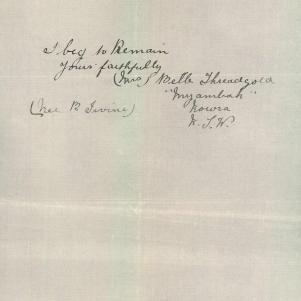 I beg to Remain
Yours faithfully
(Mrs) Belle Threadgold
"Myambah"
Nowra
N.S.W.
(Nee B Irvine)